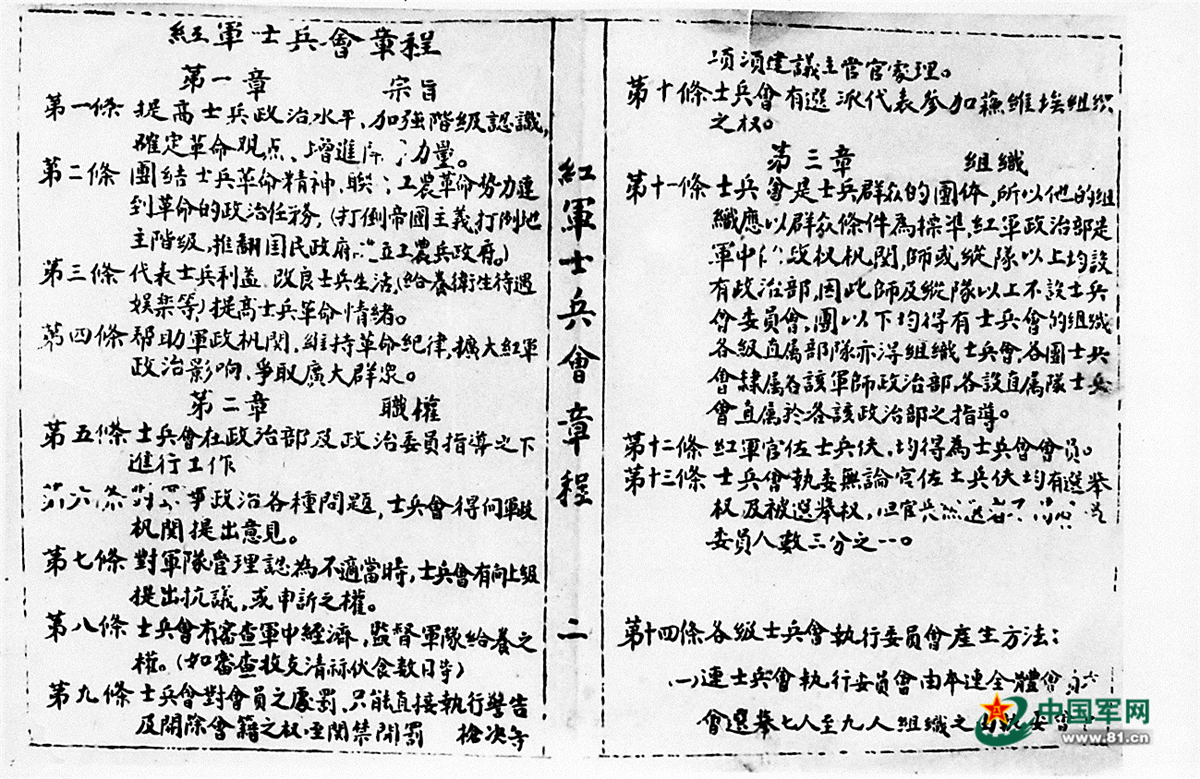 紅軍士兵會章程
第一章 宗旨
第一條 提高士兵政治水平、加強階級認識,
確定革命观点、增進 力量。
第二條 團結士兵革命精神,聯 工農革命势力達
到革命的政治任務,(打倒帝國主義,打倒地
主階級,推翻囯民政府 立工農兵政府。)
第三條 代表士兵利益 改良士兵生活,(給養衛生待遇
娱楽等)提高士兵革命情緒。
第四條 帮助軍政机関,維持革命紀律,擴大紅軍
政治影响,爭取廣大群衆。
第二章 職權
第五條 士兵會在政治部及政治委員指導之下
進行工作
第六條 軍事政治各種問題,士兵會得向軍政
机関提出意見。
第七條 對軍隊管理認為不適當時,士兵會有向上級
提出抗議,或申訴之權。
第八條 士兵會有審查軍中經濟,監督軍隊給養之
權。(如審查收支清 伙食数目等)
第九條 士兵會對會員之處罰,只能直接執行警告
及開除會籍之权 関禁開罰 槍决等
紅軍士兵會章程 二
項須建議主管官處理。
第十條 士兵會有選派代表參加蘇維埃組織
之权。
第三章 組織
第十一條 士兵會是士兵群众的團体,所以他的組
織應以群众條件為標準,紅軍政治部是
軍中 政权机関,師或縱隊以上均設
有政治部,因此師及縱隊以上不設士兵
會委員會,團以下均得有士兵會的組織
各級直属部隊亦得組織士兵會,各團士兵
會隸属各該軍師政治部,各設直属隊士兵
會直属於各該政治部之指導。
第十二條 紅軍官佐士兵伕,均得為士兵會會員。
第十三條 士兵會執委無論官佐士兵伕均有選举
权及被選举权,但官長
委員人数三分之一。
第十四條 各級士兵會執行委員會產生方法:
(一)連士兵會執行委員會由本連全體會
會選举七人至九人組織之
中国军网
www.81.cn